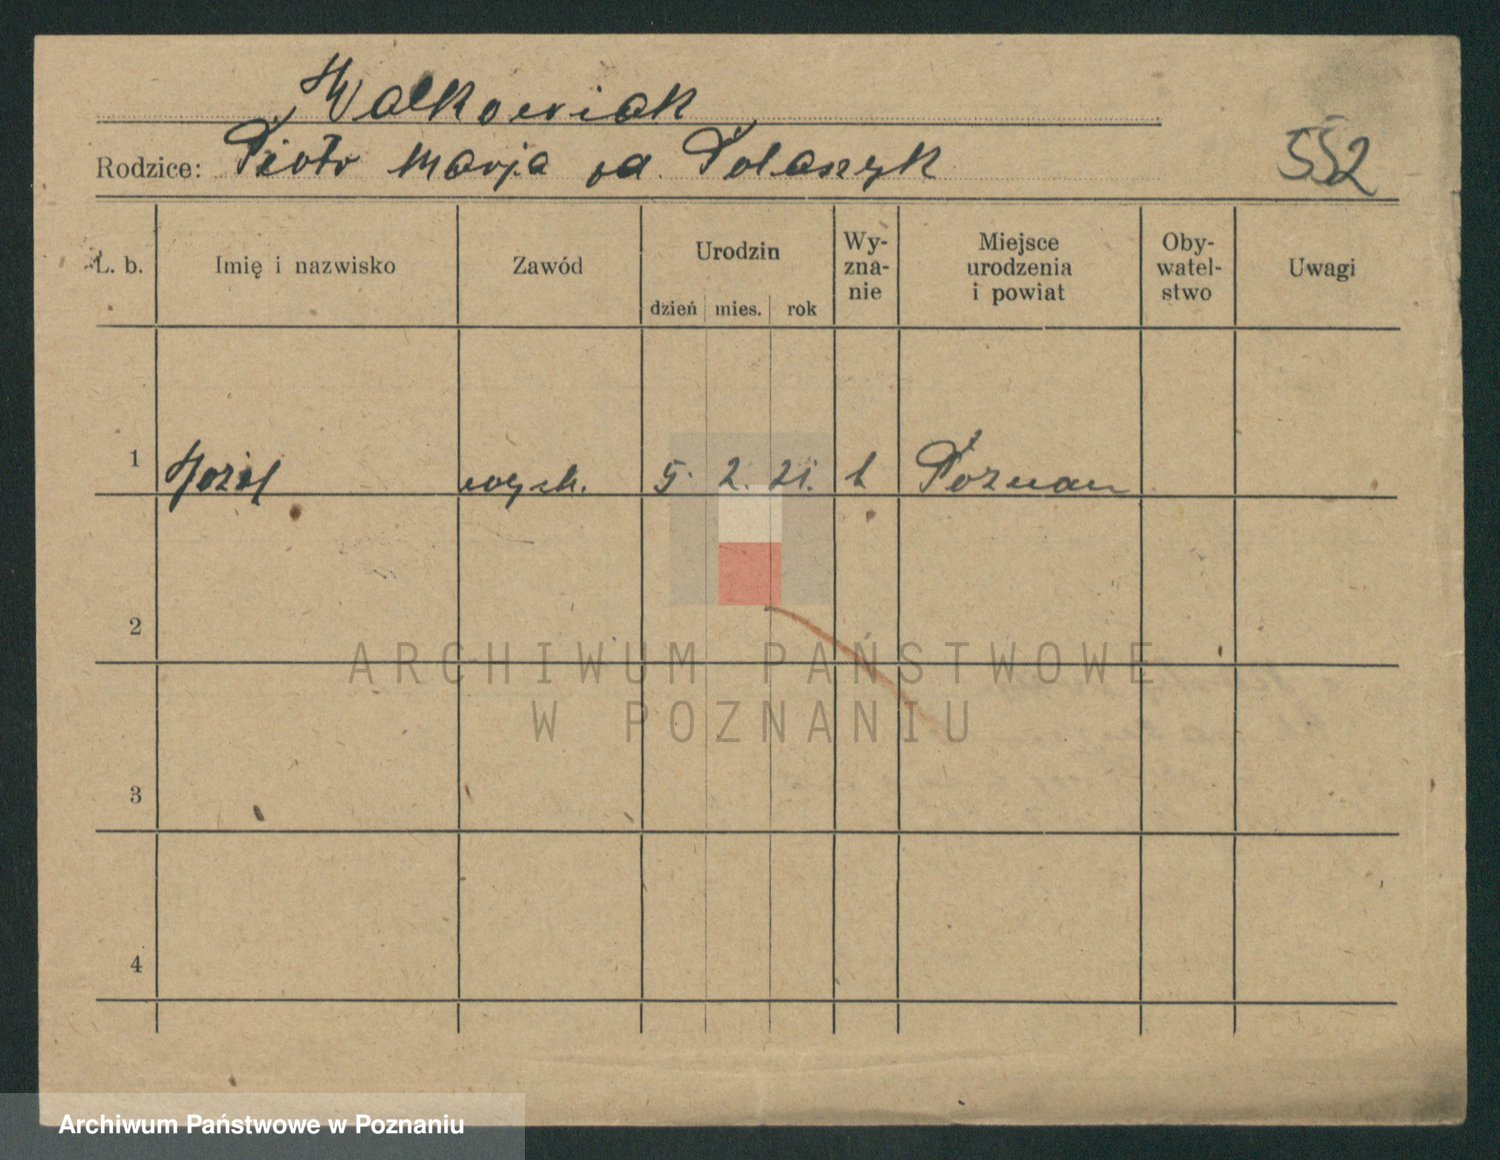 Walkowiak
Rodzice: Piotr Marja zd. Polaszyk
552
L. b. Imię i nazwisko Zawód Urodzin dzień mies. rok Wy-zna-nie Miejsce urodzenia i powiat Oby-watel-stwo Uwagi
1 Józef 5. 2. 21. k Poznań
2
3
4
ARCHIWUM PAŃSTWOWE
W POZNANIU
Archiwum Państwowe w Poznaniu